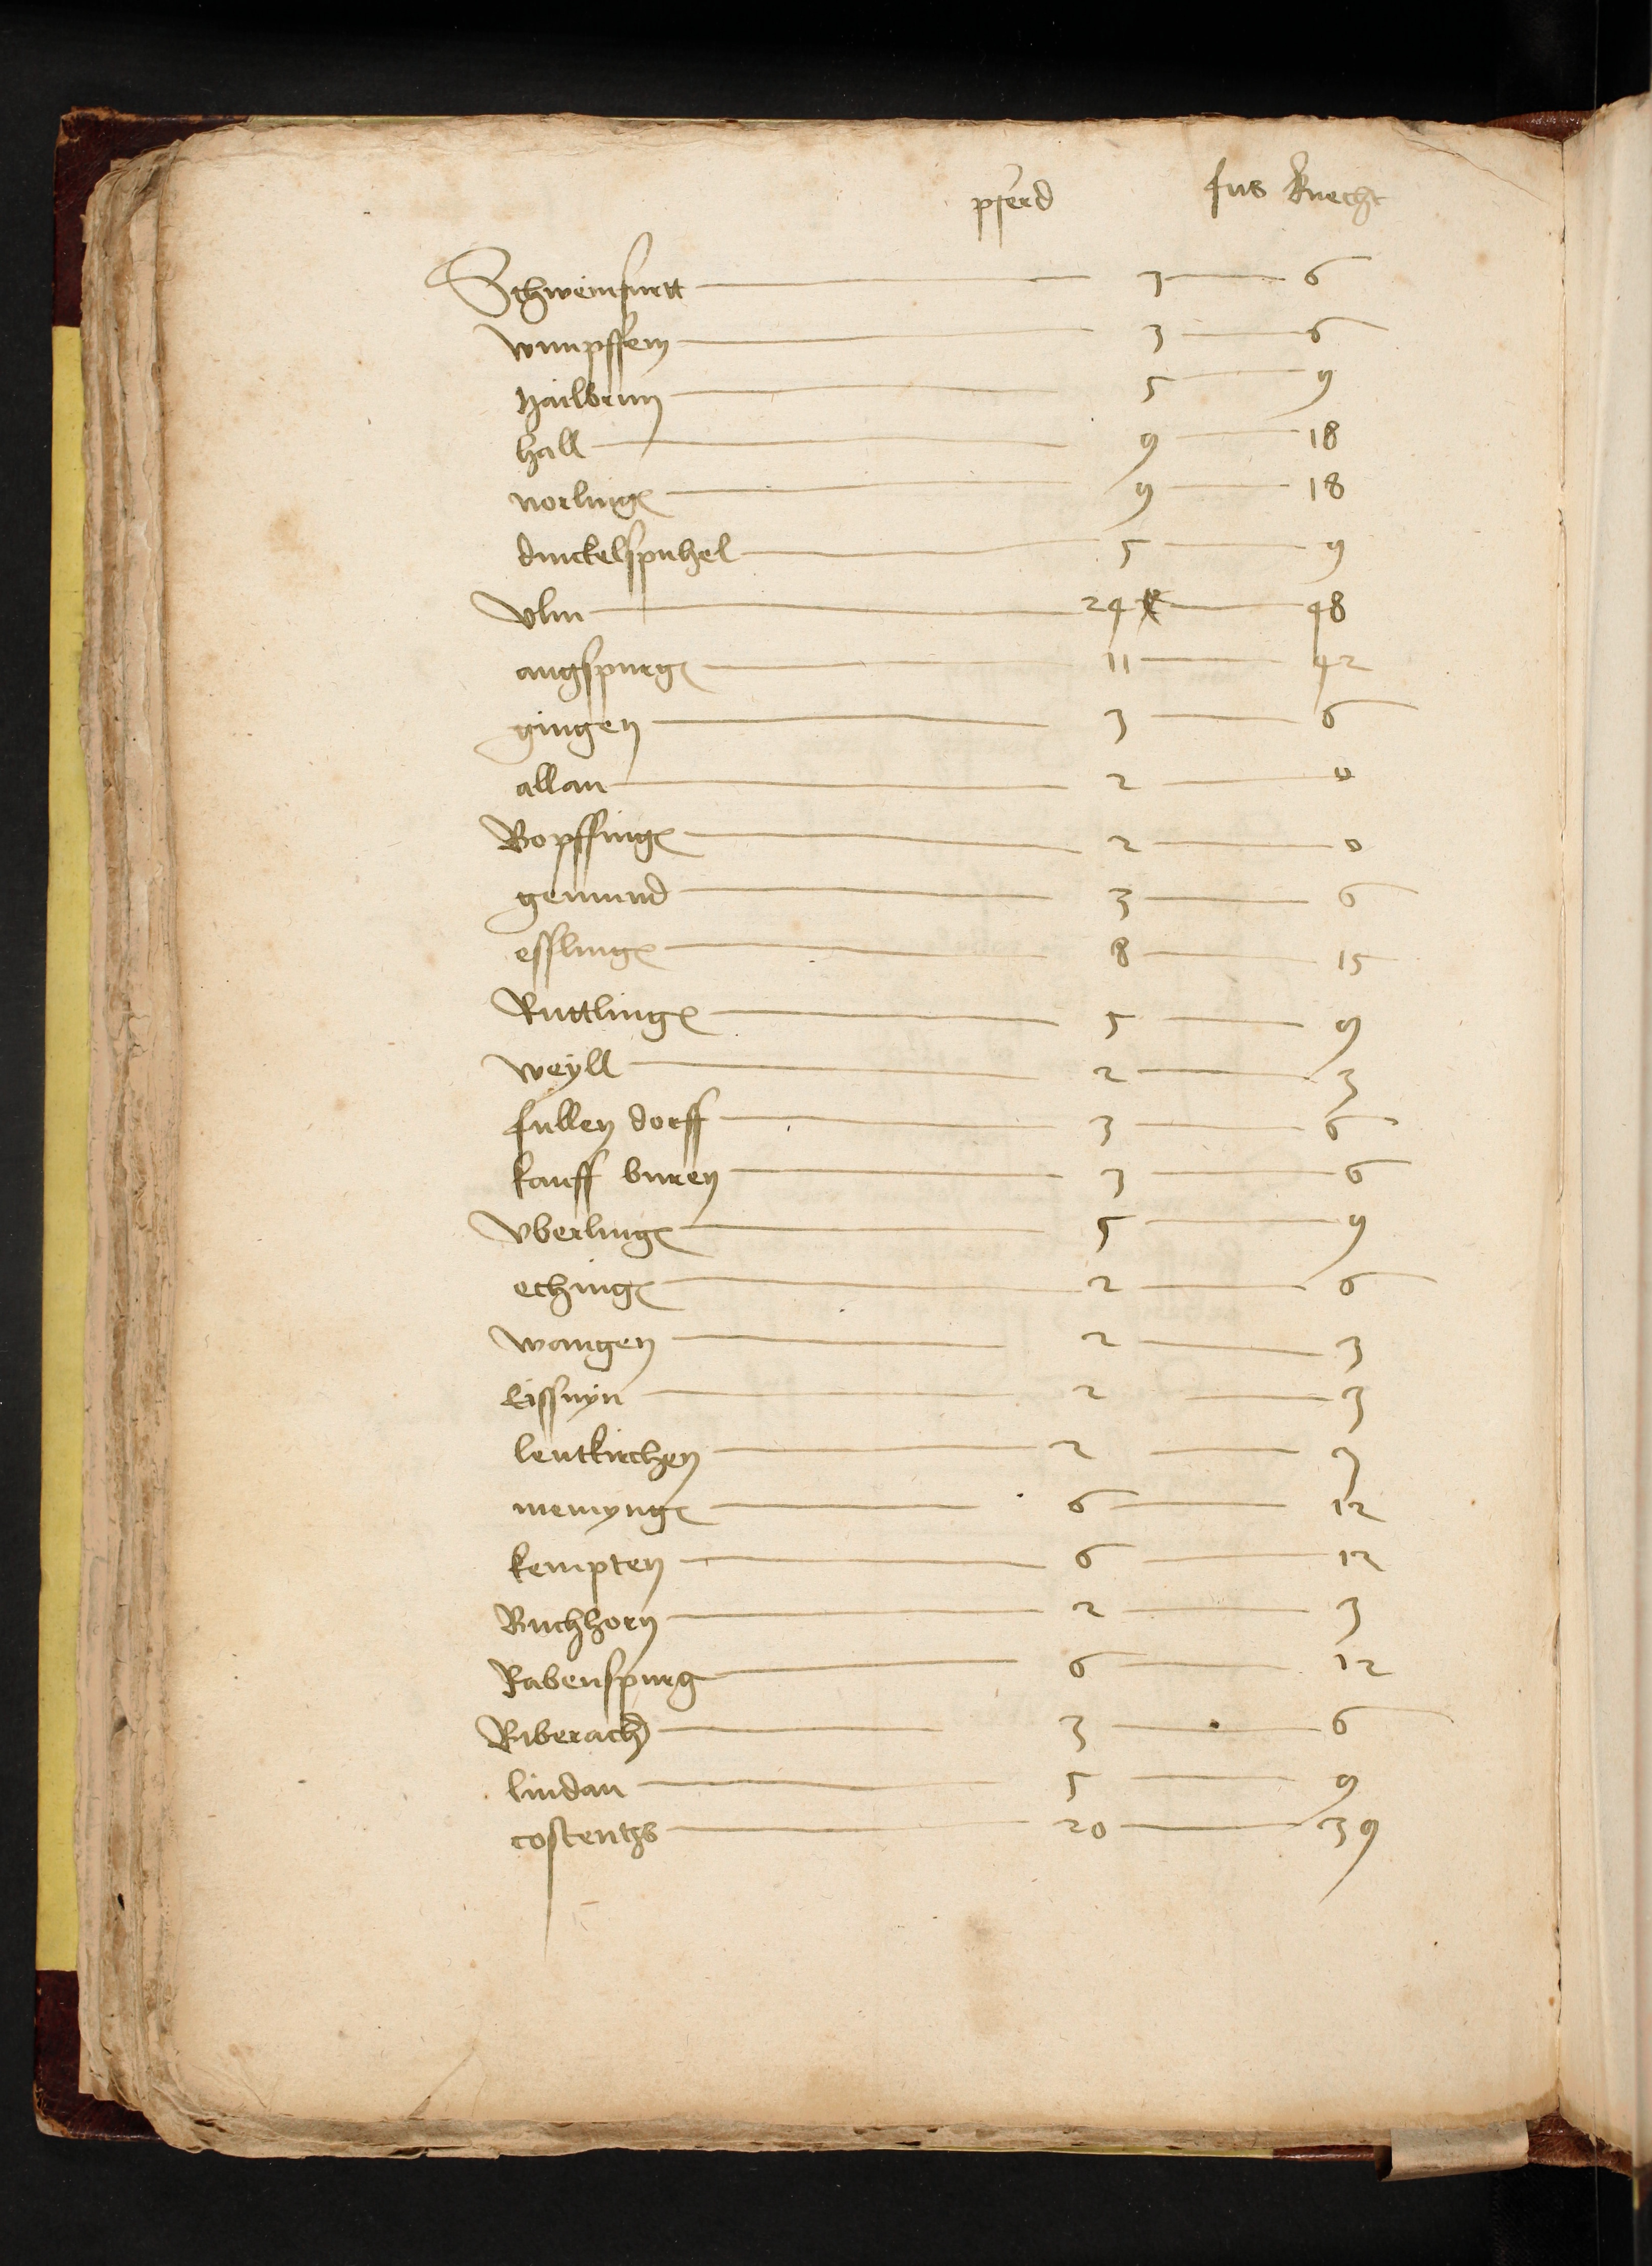 pferd fus knecht
Schweinfurtt 3 6
wimpffein 3 6
hailbrun 5 9
hall 9 18
norling 9 18
dinckelspuhel 5 9
Vlm 24 48
augspurg 11 42
gingen 3 6
allan 2 0
Bopffing 2 0
gemund 3 6
essling 8 15
Ruttling 5 9
weyll 2 3
fullen dorff 3 6
kauff buren 3 6
Vberling 5 9
eching 2 6
wangen 2 3
Eissnyn 2 3
leutkirchen 2 3
memyng 6 12
kempten 6 12
Buchhorn 2 3
Rabenspurg 6 12
Biberach 3 6
lindau 5 9
costentzs 20 39